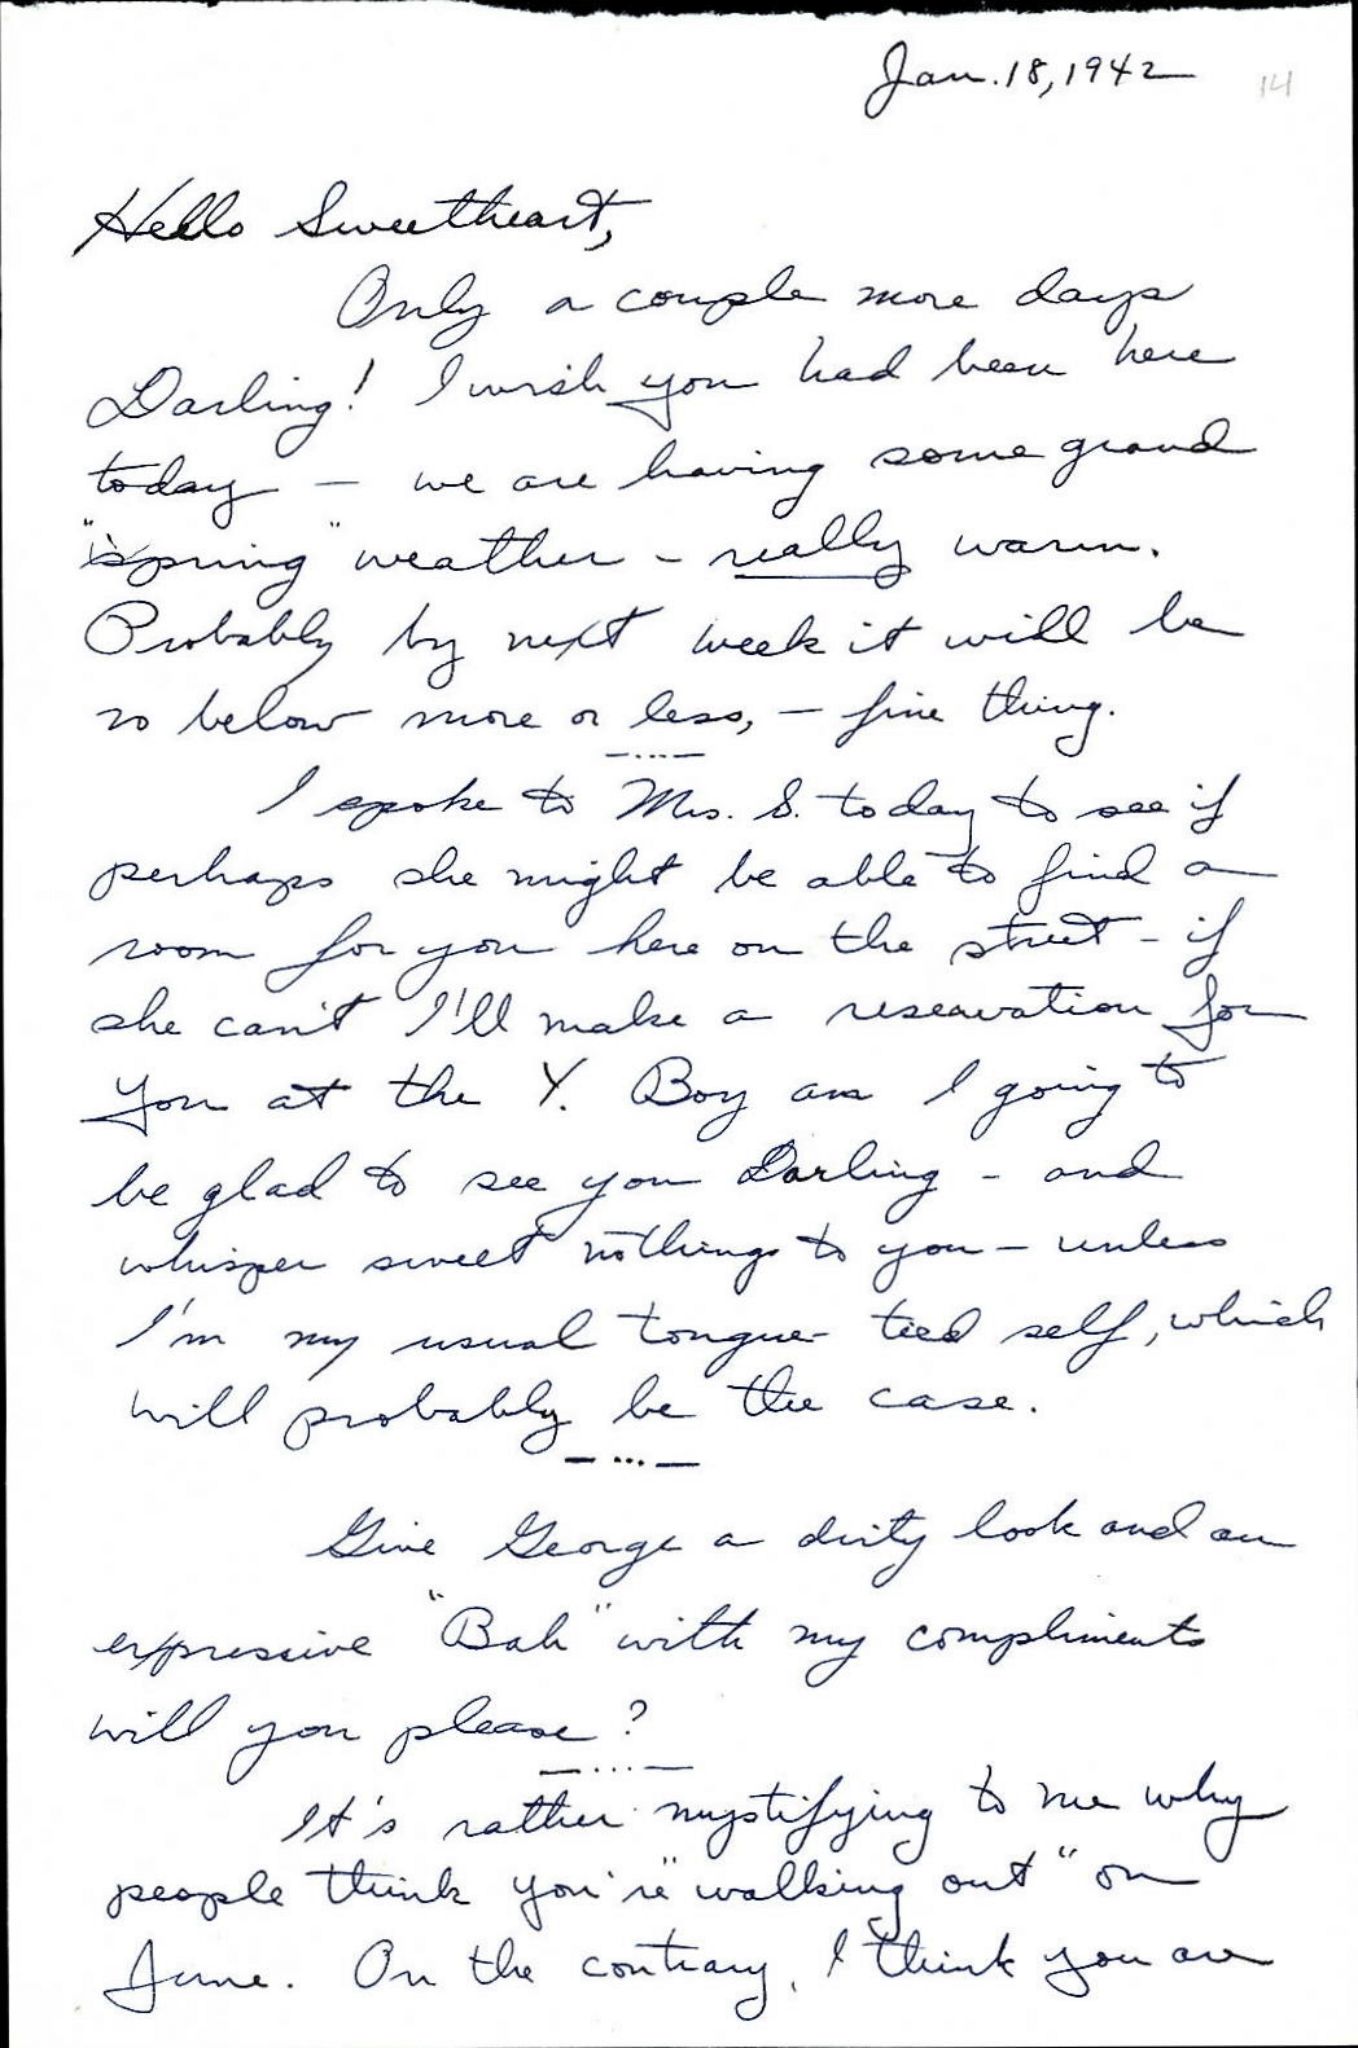 Jan. 18, 1942 14
Hello Sweetheart,
Only a couple more days
Darling! I wish you had been here
today – we are having some grand
"spring" weather – really warm.
Probably by next week it will be
20 below more or less, – fine thing.
–...–
I spoke to Mrs. S. today to see if
perhaps she might be able to find a
room for you here on the street – if
she can't I'll make a reservation for
you at the Y. Boy am I going to
be glad to see you Darling – and
whisper sweet nothings to you – unless
I'm my usual tongue-tied self, which
will probably be the case.
–...–
Give George a dirty look and an
expressive "Bah" with my compliments
will you please?
–...–
It's rather mystifying to me why
people think you're "walking out" on
June. On the contrary, I think you are